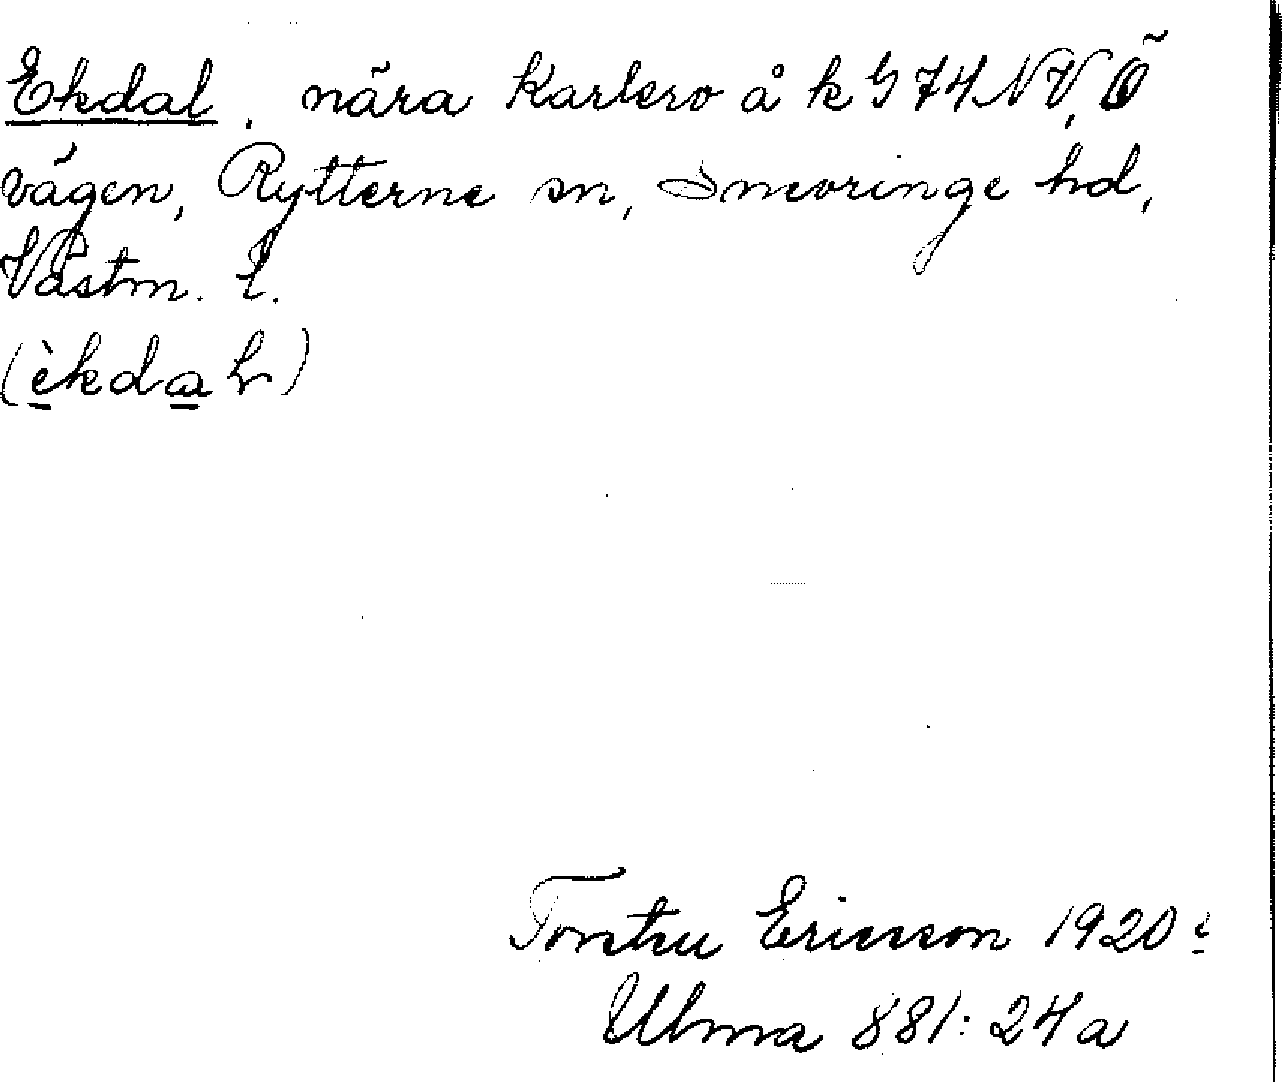 Ekdal, nära Karlsro å k G 74 NV, Ö
vägen, Rytterne sn, Snevringe hd,
Västm. l.
(èkdaɬ)
Torsten Ericsson 1920
Ulma 881:24a